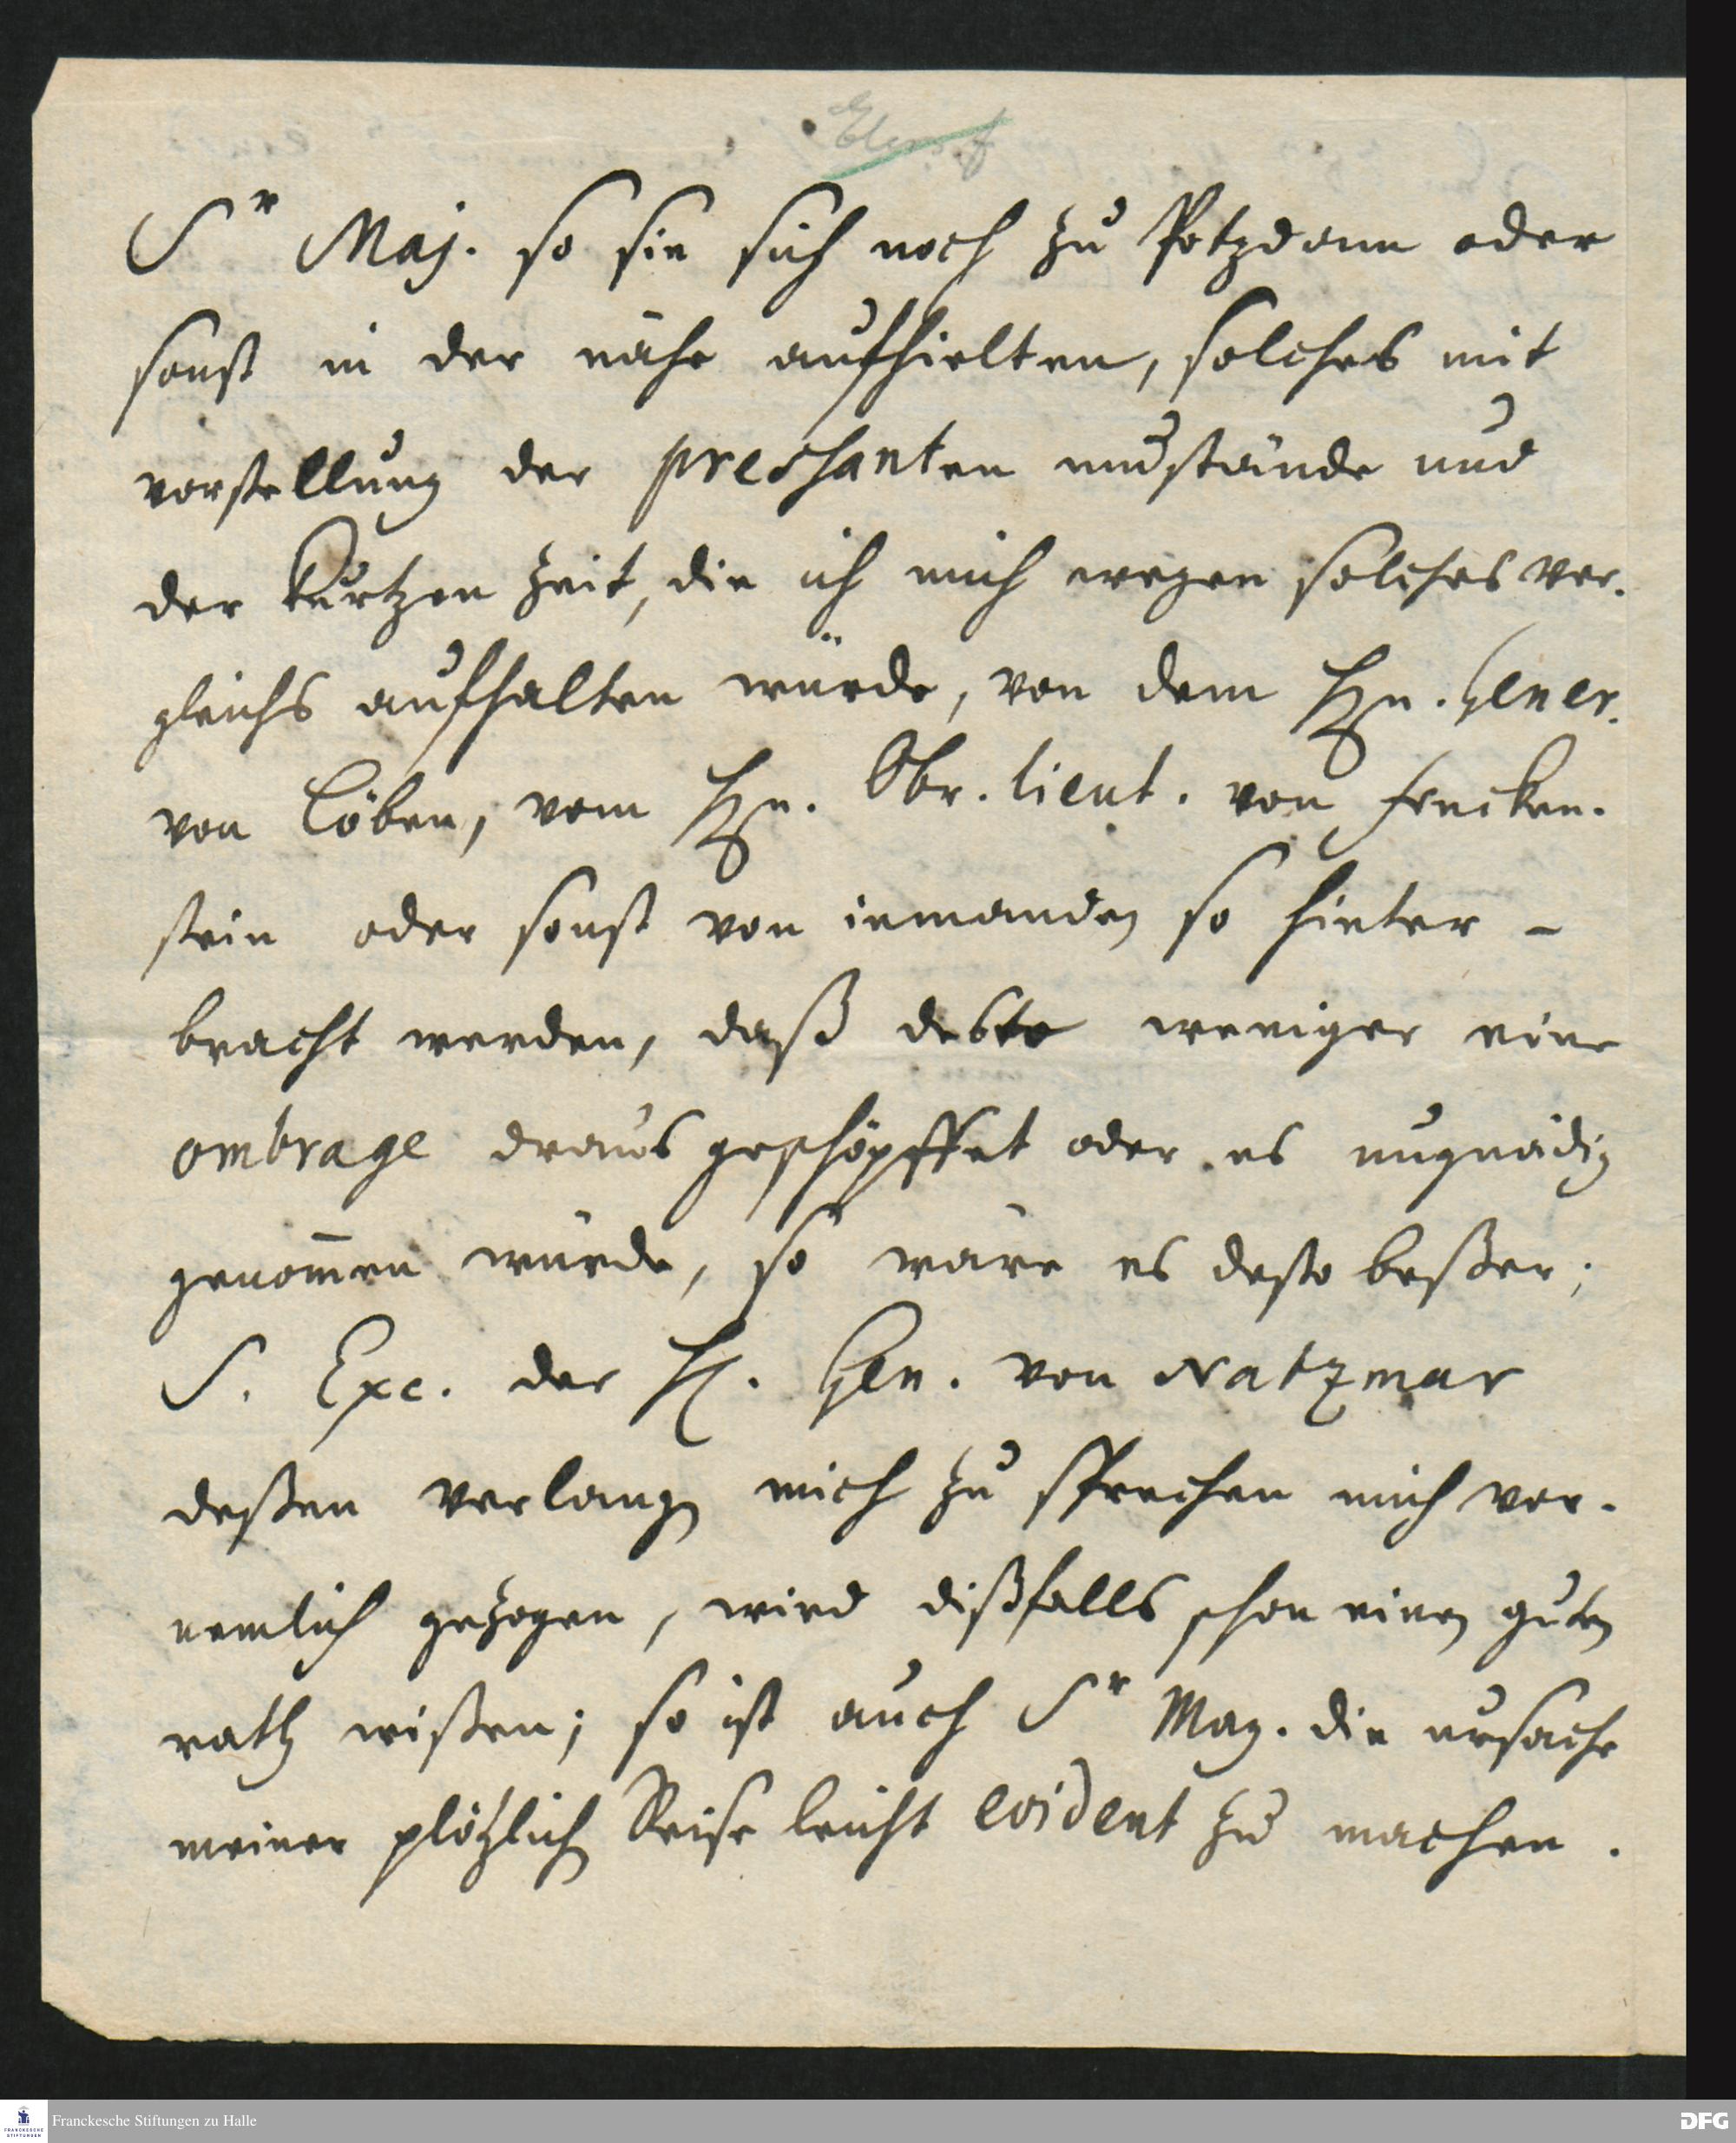 Sr Maj. so sie sich noch zu Potzdam oder
sonst in der nähe aufhielten, solches mit
vorstellung der preshanten umbstände und
der kurtzen Zeit, die ich mich wegen solches ver-
gleichs aufhalten würde, von dem Hn. Gener.
von Löben, vom Hn. Obr. Lieut. von Fincken-
stein oder sonst von iemanden so hinter-
bracht werden, daß desto weniger eine
ombrage draus geschöpffet oder es ungnädig
genom̄en würde, so wäre es desto beßer;
S. Exc. der H. Gen. von Natzmar
deßen verlangen mich zu sprechen mich vor-
nemlich gezogen, wird dißfalls schon einen guten
rath wißen; so ist auch Sr Maj. die ursache
meiner plötzlichen Reise leicht evident zu machen.
Franckesche Stiftungen zu Halle
FRANCKESCHE
STIFTUNGEN
DFG